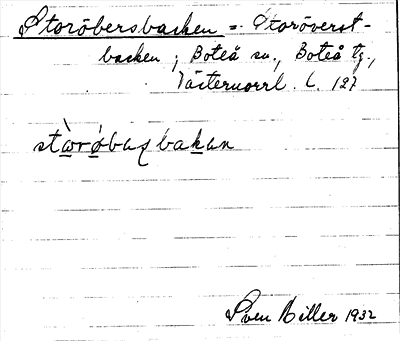 Storöbersbacken = Storöverst-
backen; Boteå sn., Boteå tg.,
Västernorrl. l. 127
stàròbaʂbakan
Sven Hiller 1932